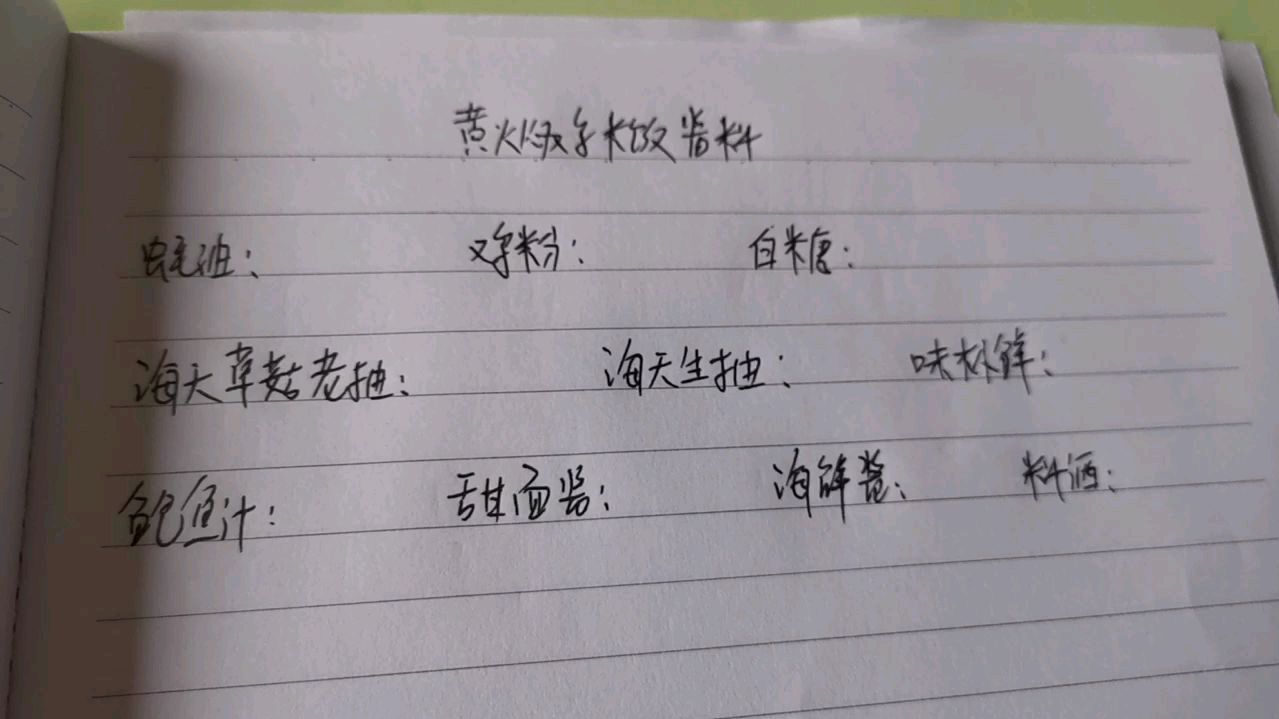 黄焖鸡米饭酱料
蚝油： 鸡粉： 白糖：
海天草菇老抽： 海天生抽： 味极鲜：
鲍鱼汁： 甜面酱： 海鲜酱： 料酒：